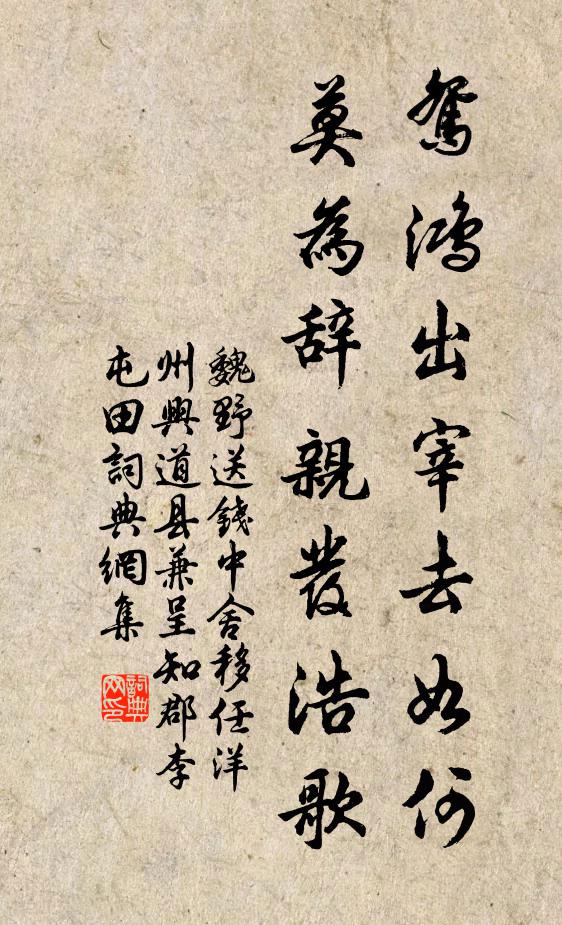 鴛鴻出宰去如何
莫為辞親發浩歌
魏野送錢中舍移任洋
州興道县兼呈知郡李
屯田詞典網集
詞典
网印